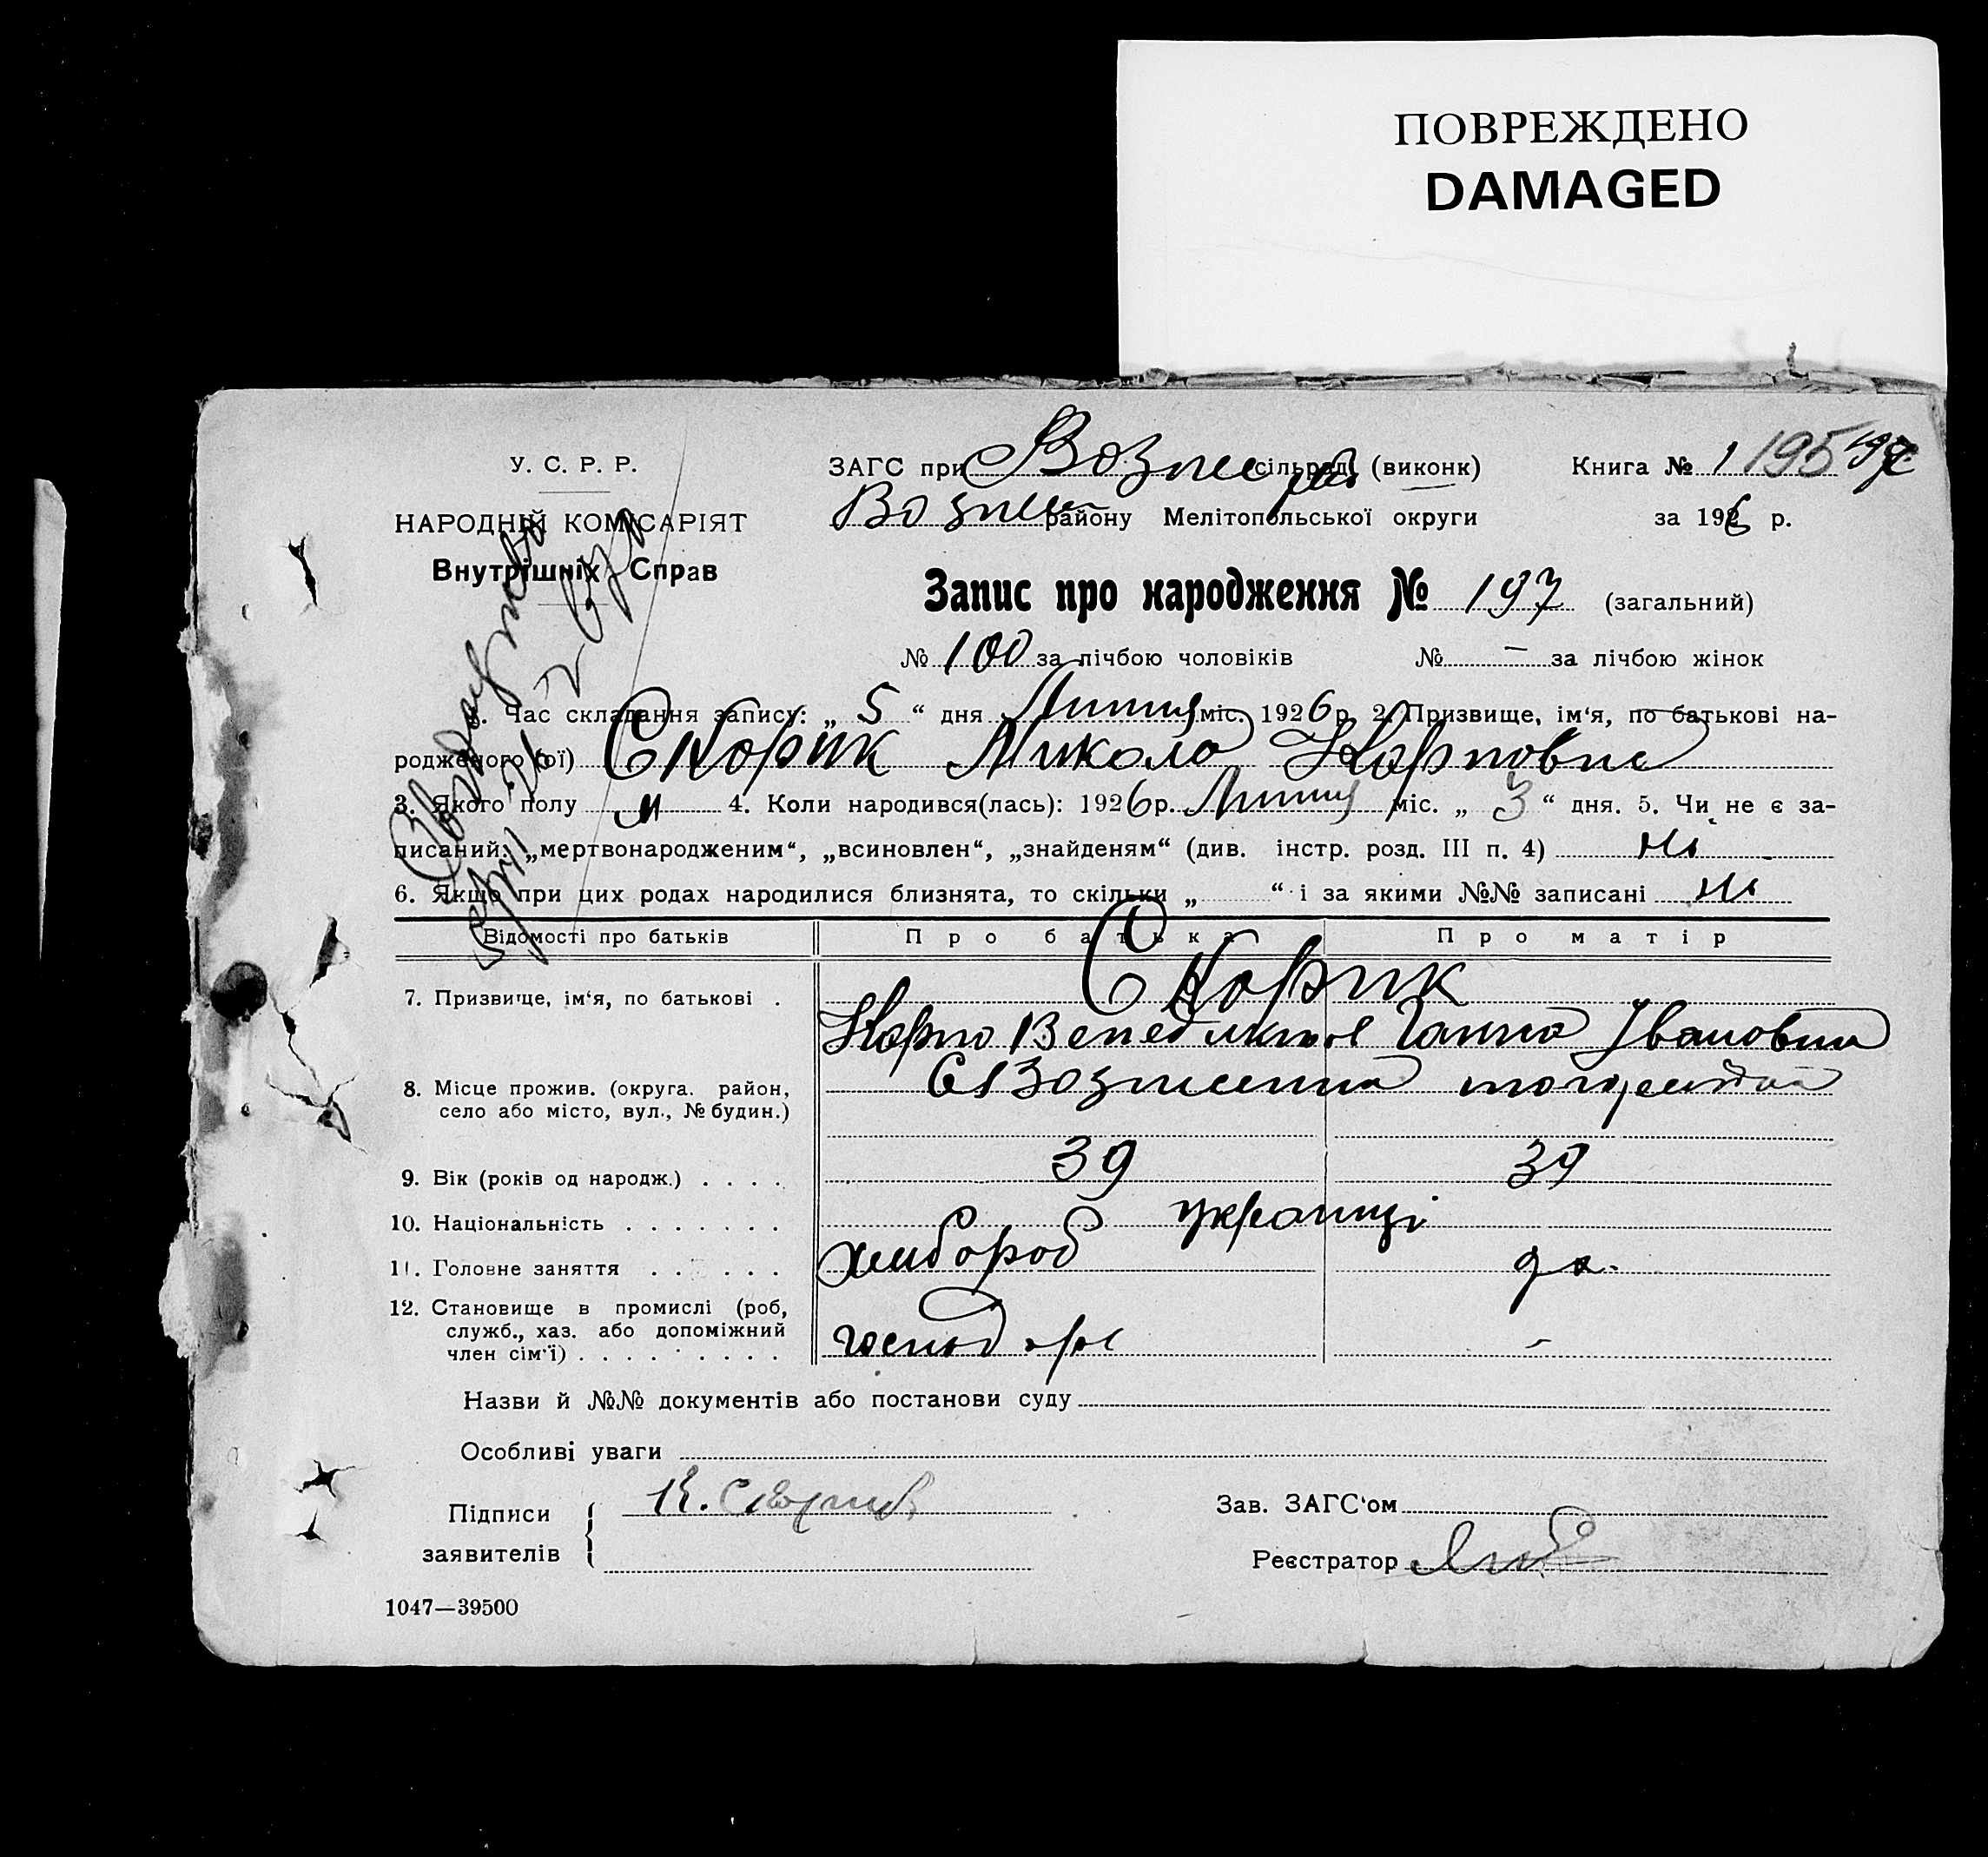 ПОВРЕЖДЕНО
DAMAGED
У. С. Р. Р.
НАРОДНІЙ КОМІСАРІЯТ
Внутрішніх Справ
ЗАГС при Вознес сільраді (виконк) Книга № 1 195 197
Вознес району Мелітопольської округи за 1926 р.
Запис про народження № 197 (загальний)
№ 100 за лічбою чоловіків № — за лічбою жінок
1. Час складання запису: „ 5 “ дня Липня міс. 1926 р. 2. Призвище, ім‘я, по батькові на-
родженого (ої) Скорик Микола Карповис
3. Якого полу м 4. Коли народився(лась): 1926 р. Липня міс. „ 3 “ дня. 5. Чи не є за-
писаний: „мертвонародженим“, „всиновлен“, „знайденям“ (див. інстр. розд. III п. 4) ні
6. Якщо при цих родах народилися близнята, то скільки „ “ і за якими №№ записані ні
Відомості про батьків Про батька Про матір
7. Призвище, ім‘я, по батькові . Скорик
Карпо Венедиктов Ганна Івановна
8. Місце прожив. (округа. район, С Вознесенка
село або місто, вул., № будин.)
9. Вік (років од народж.) . . . . 39 39
10. Національність . . . . . . . українці
11. Головне заняття . . . . . . хлібороб дх.
12. Становище в промислі (роб,
служб., хаз. або допоміжний господарь -
член сім‘ї) . . . . . . . . .
Назви й №№ документів або постанови суду
Особливі уваги
Підписи К. Скорик Зав. ЗАГС‘ом
заявителів Реєстратор
1047—39500